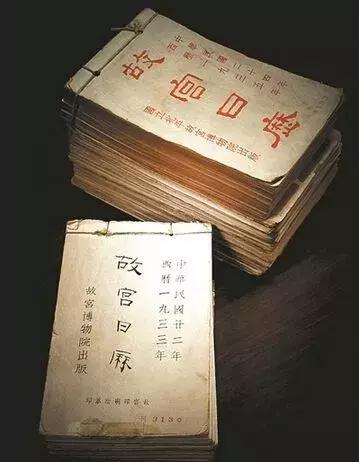 中華民國二十四年
西曆一九三五年
故宮日曆
國立北平故宮博物院出版
中華民國廿二年
西曆一九三三年
故宮日厤
故宮博物院出版
3130